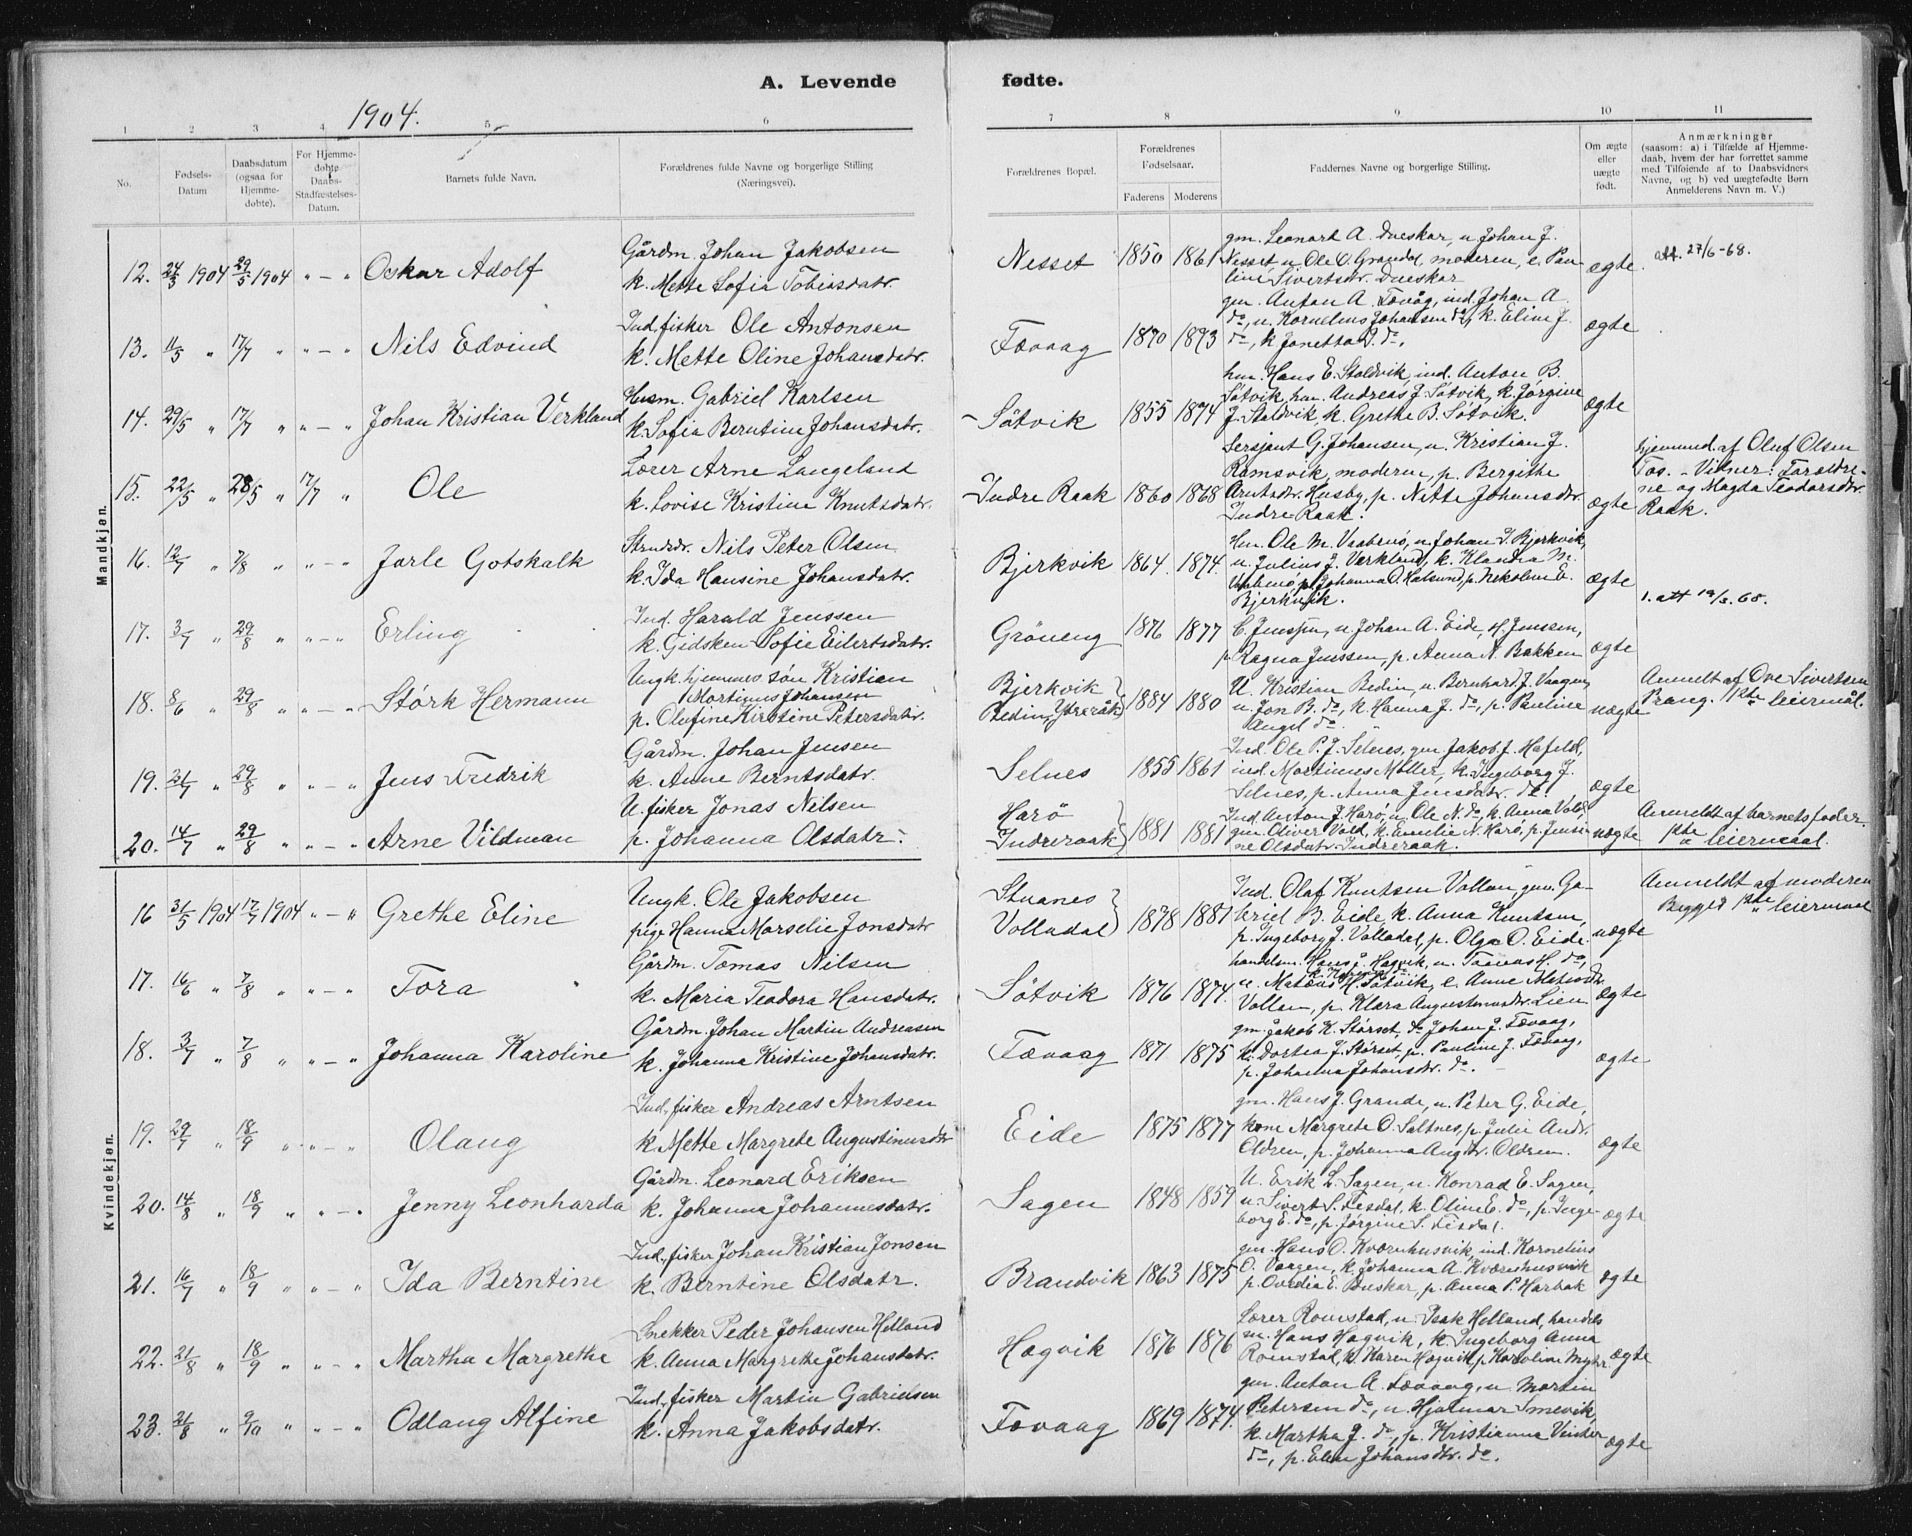 A. Levende fødte.
1904.
1 2 3 4 5 6 7 8 9 10 11
No.
Fødsels-
Datum
Daabsdatum
(ogsaa for
Hjemme-
døbte).
For Hjemme-
døbte
Daabs-
Stadfæstelses-
Datum.
Barnets fulde Navn.
Forældrenes fulde Navne og borgerlige Stilling
(Næringsvei).
Forældrenes Bopæl.
Forældrenes
Fødselsaar.
Faderens Moderens
Faddernes Navne og borgerlige Stilling.
Om ægte
eller
uægte
født.
Anmærkninger
(saasom: a) i Tilfælde af Hjemme-
daab, hvem der har forrettet samme
med Tilføiende af to Daabsvidners
Navne, og b) ved uægtefødte Børn
Anmelderens Navn m. V.)
Mandkjøn.
12. 24/3 1904 29/5 1904 " - " Oskar Adolf
Gårdm. Johan Jakobsen
k. Mette Sofie Tobiasdatr.
Nesset 1850 1861
gm. Leonard A. Dueskar, u. Johan J.
Nesset u. Ole O. Grandal, moderen, e. Pau-
line Sivertsdr. Dueskar
ægte. att. 27/6-68.
13. 11/5 " 17/7 " " - " Nils Edvind
Ind, fisker Ole Antonsen
k. Mette Oline Johansdatr.
Tævaag 1870 1873
gm. Anton A. Tævåg, ind. Johan A.
do, u. Kornelius Johansen do, k. Eline J.
do, k. Janetta P. do.
ægte
14. 29/5 " 17/7 " " - " Johan Kristian Verkland
Husm. Gabriel Karlsen
k. Sofia Berntine Johansdatr.
Søtvik 1855 1874
hm. Hans E. Staldvik, ind. Anton B.
Søtvik, hm. Andreas J. Søtvik, k. Jørgine
J. Staldvik k. Grethe B. Søtvik.
ægte
15. 22/5 " 28/5 " 17/7 " Ole
Lærer Arne Langeland
k. Lovise Kristine Knutsdatr.
Indre Raak 1860 1868
Sersjant G. Johansen, u. Kristian J.
Ramsvik, moderen, p. Bergithe
Arntsdr. Husby, p. Nette Johansdtr.
Indre Raak.
ægte
hjemmd. af Oluf Olsen
Tøs. - Vidner: Forældre-
ne og Magda Teodorsdtr.
Raak.
16. 12/7 " 7/8 " " - " Jarle Gotskalk
Strandsdr. Nils Peter Olsen
k. Ida Hansine Johansdatr.
Bjerkvik 1864. 1874.
Hm. Ole M. Vaabenø, u. Johan I. Bjerkvik,
u. Julius J. Verkland, k. Klandia M.
Vaabenø, p. Johanna O. Halsund, p. Nekoline E.
Bjerkvik.
ægte 1. att 19/3. 68.
17. 3/7 " 29/8 " " - " Erling
Ind. Harald Jenssen
k. Gidsken Sofie Eilertsdatr.
Grøneng 1876 1877
C. Jenssen, u. Johan A. Eide, H. Jenssen,
p. Ragna Jenssen, p. Anna N. Bakken
ægte
18. 8/6 " 29/8 " " - " Størk Hermann
Ungk. hjemmes. søn Kristian
Martinus Johansen
p. Olufine Kirstine Petersdatr.
Bjerkvik
Bedin, Ytreråk 1884 1880
U. Kristian Bedin, u. Bernhard J. Vaagen,
u. Jon B. do, k. Hanna J. do, p. Pauline
Angel do
uægte
Anmeldt af Ove Sivertsen
Prang. 1ste leiermål.
19. 21/7 " 29/8 " " - " Jens Fredrik
Gårdm. Johan Jensen
k. Anne Berntsdatr.
Selnes 1855 1861
Ind. Ole P. J. Selnes, gm. Jakob J. Hafeld,
ind. Martinus Møller, k. Ingeborg J.
Selnes, p. Anna Jensdatr. do.
ægte
20. 14/7 " 29/8 " " - " Arne Vildman
U. fisker Jonas Nilsen
p. Johanna Olsdatr.
Harø
Indreraak 1881 1881
Ind. Anton J. Harø, u. Ole N. do, k. Anna Vold,
gm. Oliver Vold, k. Emelie N. Harø, p. Jensi-
ne Olsdatr. Indreraak.
uægte
Anmeldt af barnets fader.
1ste leiermaal.
Kvindekjøn.
16 31/5 1904 17/7 1904 " - " Grethe Eline
Ungk. Ole Jakobsen
pige Hanna Marselie Jonsdatr
Stuanes
Volladal 1878 1881
Ind. Olaf Knutsen Vollan, gm. Ga-
briel B. Eide, k. Anna Knutsen,
p. Ingeborg J. Volladal, p. Olga O. Eide.
uægte
Anmeldt af moderen
Begges 1ste leiermaal
17. 16/6 " 7/8 " " - " Tora
Gårdm. Tomas Nilsen
k. Maria Teodora Hansdatr.
Søtvik 1876 1874.
handelsm. Hans J. Hagvik, u. Tomas H. do,
u. Matæus H. Søtvik, e. Anne Matiasdtr
Vollan, p. Klara Augustinusdtr. Lien
ægte
18. 3/7 " 7/8 " " - " Johanna Karoline
Gårdm. Johan Martin Andreasen
k. Johanna Kristine Johansdatr.
Tævaag 1871 1875
gm. Jakob K. Størset, do Johan J. Tævaag,
k. Dortea J. Størset, p. Pauline J. Tævaag,
p. Johanna Johansdtr. do.
ægte
19. 29/7 " 18/9 " " - " Olaug
Ind, fisker Andreas Arntsen
k. Mette Margrete Augustinusdtr
Eide 1875 1877
gm. Hans J. Grande, u. Peter G. Eide,
kone Margrete O. Saltnes, p. Julie Andr.
Oldren, p. Johanna Augdtr. Oldren.
ægte
20. 14/8 " 18/9 " " - " Jenny Leonharda
Gårdm. Leonard Eriksen
k. Johanna Johannesdatr.
Sagen 1848 1859
U. Erik L. Sagen, u. Konrad E. Sagen,
u. Sivert S. Tesdal, k. Oline E. do, p. Inge-
borg E. do, p. Jørgine S. Tesdal.
ægte
21. 16/7 " 18/9 " " - " Ida Berntine
Ind, fisker Johan Kristian Jonsen
k. Berntine Olsdatr.
Brandvik 1863 1875
gm. Hans O. Kværnhusvik, ind. Kornelius
O. Vaagen, k. Johanna A. Kværnhusvik
p. Ovedia E. Dueskar, p. Anna P. Harbak
ægte
22. 21/8 " 18/9 " " - " Martha Margrethe
Snekker Peder Johansen Helland
k. Anna Margrethe Johansdatr.
Hagvik 1876 1876
Lærer Romstad, u. Isak Helland, handels
m. Hans Hagvik, k. Ingeborg Anna
Romstad, k. Karen Hagvik, p. Karoline Myhr
ægte
23. 21/8 " 9/10 " " - " Odlaug Alfine
Ind, fisker Martin Gabrielsen
k. Anna Jakobsdatr.
Tævaag 1869 1874.
gm. Anton A. Tævaag, u. Martin
Petersen do, u. Hjalmar Smevik,
k. Martha J. do, p. Kristianna Vinter
do, p. Elen Johansdtr. do.
ægte